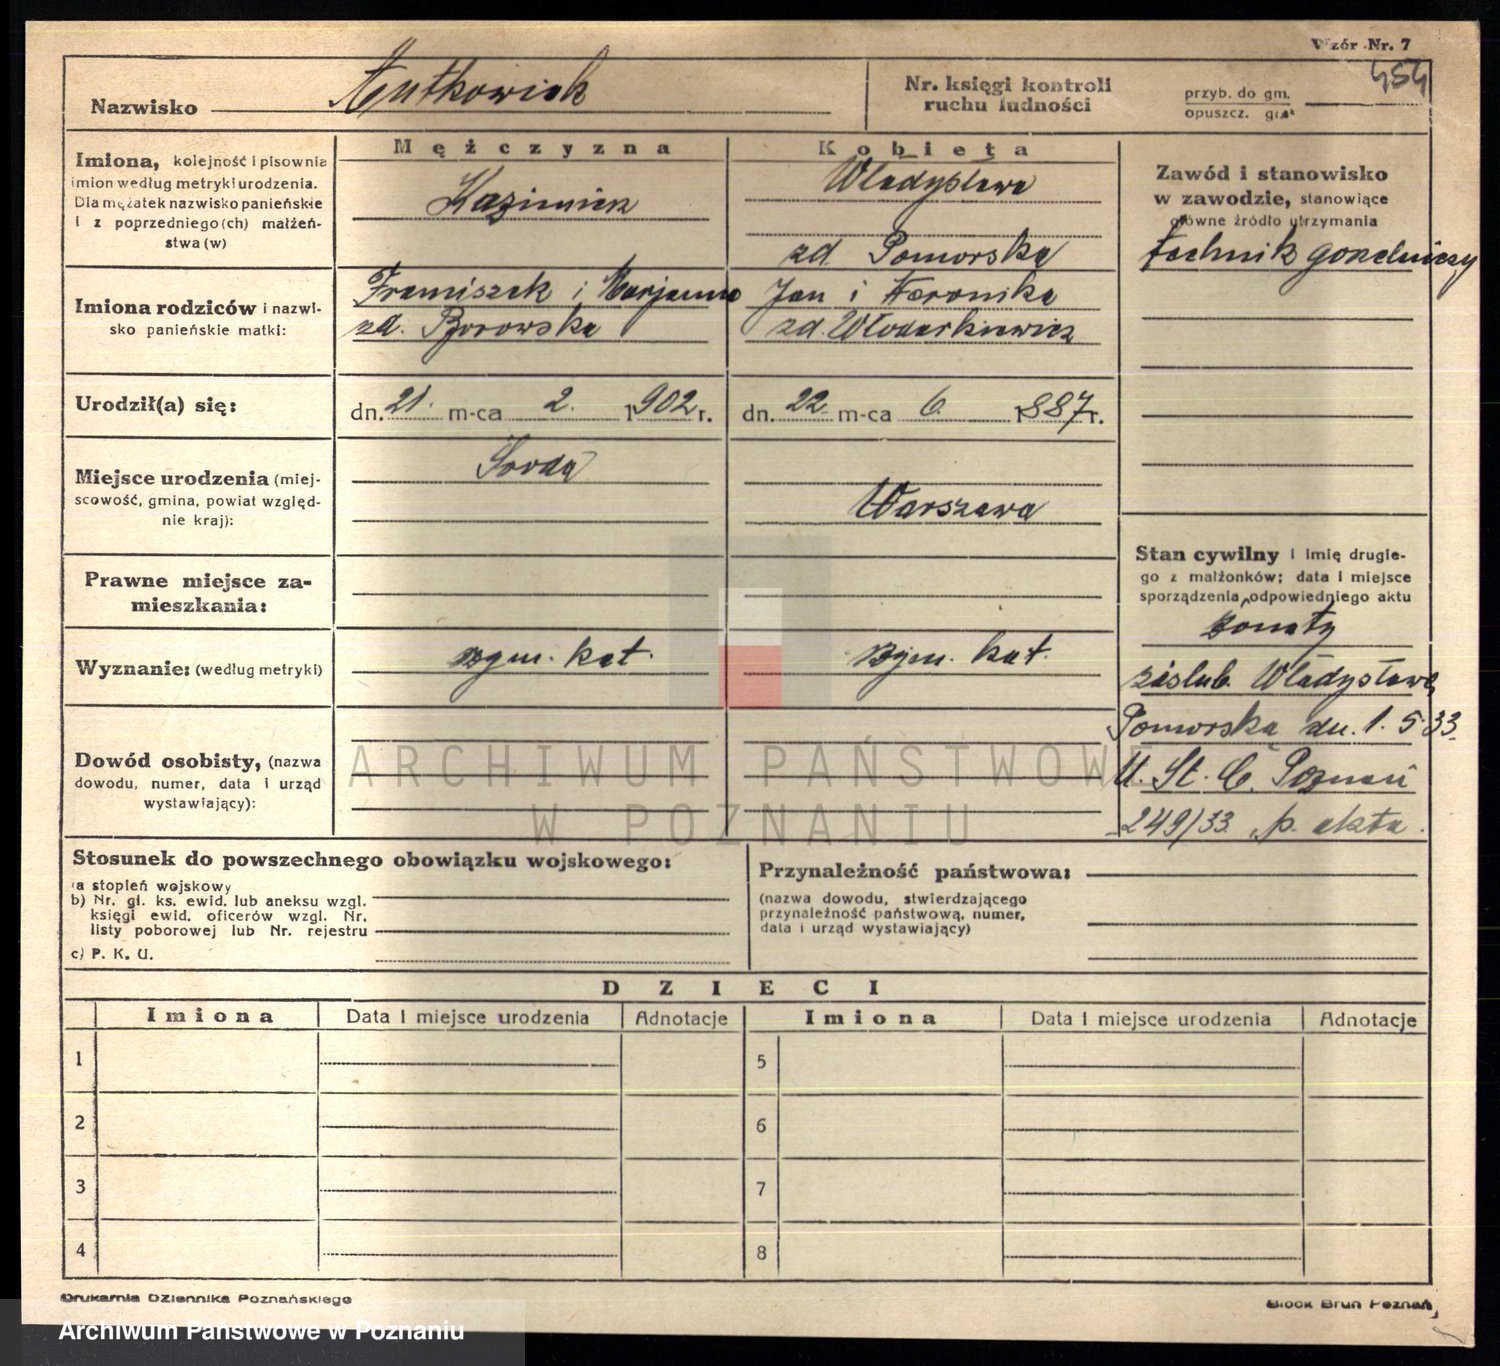 Wzór Nr. 7
454
Nazwisko
Nr. księgi kontroli
ruchu ludności
przyb. do gm.
opuszcz. gm.
Imiona, kolejność i pisownia
imion według metryki urodzenia.
Dla mężatek nazwisko panieńskie
i z poprzedniego(ch) małżeń-
stwa (w)
Mężczyzna
Kazimierz
Kobieta
Władysława
zd Pomorska
Zawód i stanowisko
w zawodzie, stanowiące
główne źródło utrzymania
technik gorzelniczy
Imiona rodziców i nazwi-
sko panieńskie matki:
Franciszek i Marjanna
zd. Borowska
Jan i Weronika
zd. Włodarkiewicz
Urodził(a) się:
dn. 21. m-ca 2. 1902 r.
dn. 22 m-ca 6. 1887 r.
Miejsce urodzenia (miej-
scowość, gmina, powiat wzgled-
nie kraj):
Warszawa
Prawne miejsce za-
mieszkania:
Stan cywilny i imię drugie-
go z małżonków; data i miejsce
sporządzenia odpowiedniego aktu
żonaty
zaślub. Władysławą
Pomorską dn. 1. 5 33.
U. St. C. Poznań
249/33 p. akta.
Wyznanie: (według metryki)
rzym. kat.
rzym. kat.
Dowód osobisty, (nazwa
dowodu, numer, data i urząd
wystawiający):
ARCHIWUM PAŃSTWOWE
W POZNANIU
Stosunek do powszechnego obowiązku wojskowego:
(a stopień wojskowy
b) Nr. gł. ks. ewid. lub aneksu wzgl.
księgi ewid. oficerów wzgl. Nr.
listy poborowej lub Nr. rejestru
c) P. K. U.
Przynależność państwowa:
(nazwa dowodu, stwierdzającego
przynależność państwową, numer,
data i urząd wystawiający)
DZIECI
Imiona Data i miejsce urodzenia Adnotacje Imiona Data i miejsce urodzenia Adnotacje
1 5
2 6
3 7
4 8
Drukarnia Dziennika Poznańskiego
Block Brun Poznań
Archiwum Państwowe w Poznaniu